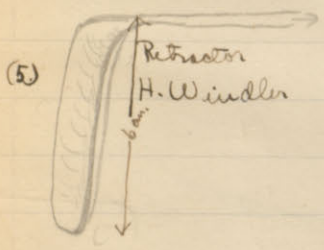 (5.)
Retractor
H. Windler
6 cm.